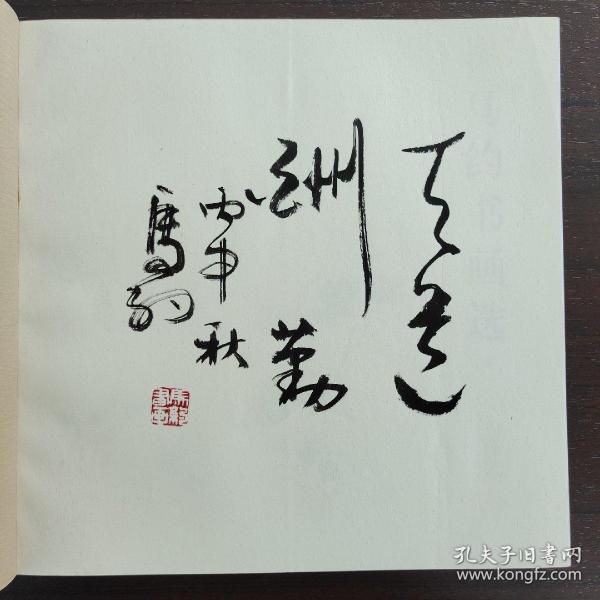 天道
酬勤
丙申秋
孔夫子旧书网
www.kongfz.com